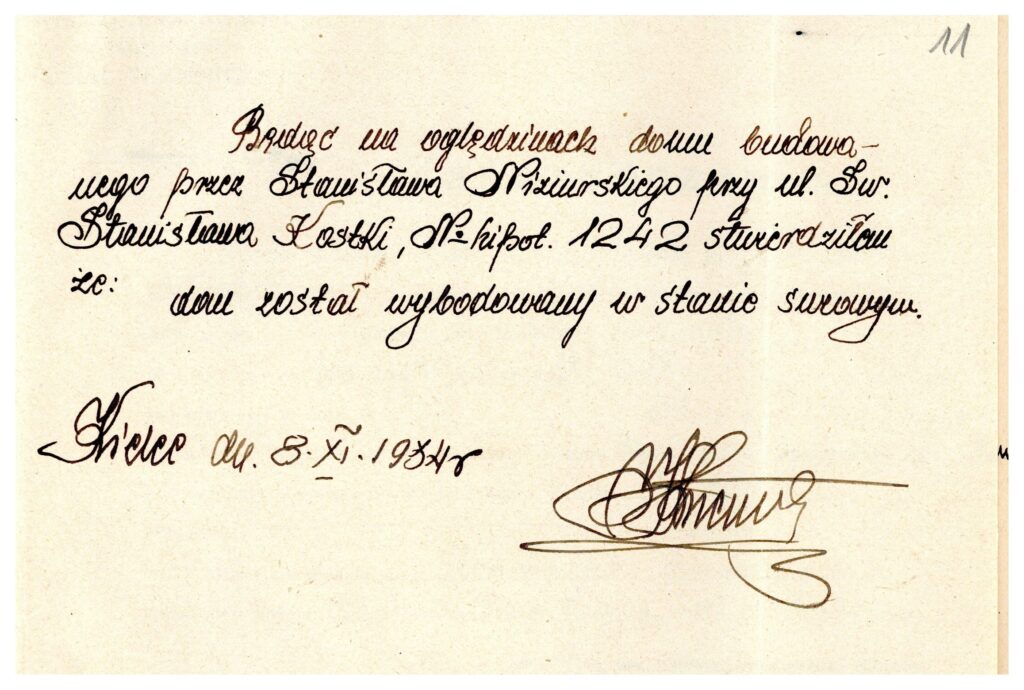 11
Będąć na oględzinach domu budowa-
nego przez Stanisława Niziurskiego przy ul. Św.
Stanisława Kostki, № hipot. 1242 stwierdziłem
że:
dom został wybodowany w stanie surowym.
Kielce dn. 8.XI.1934r